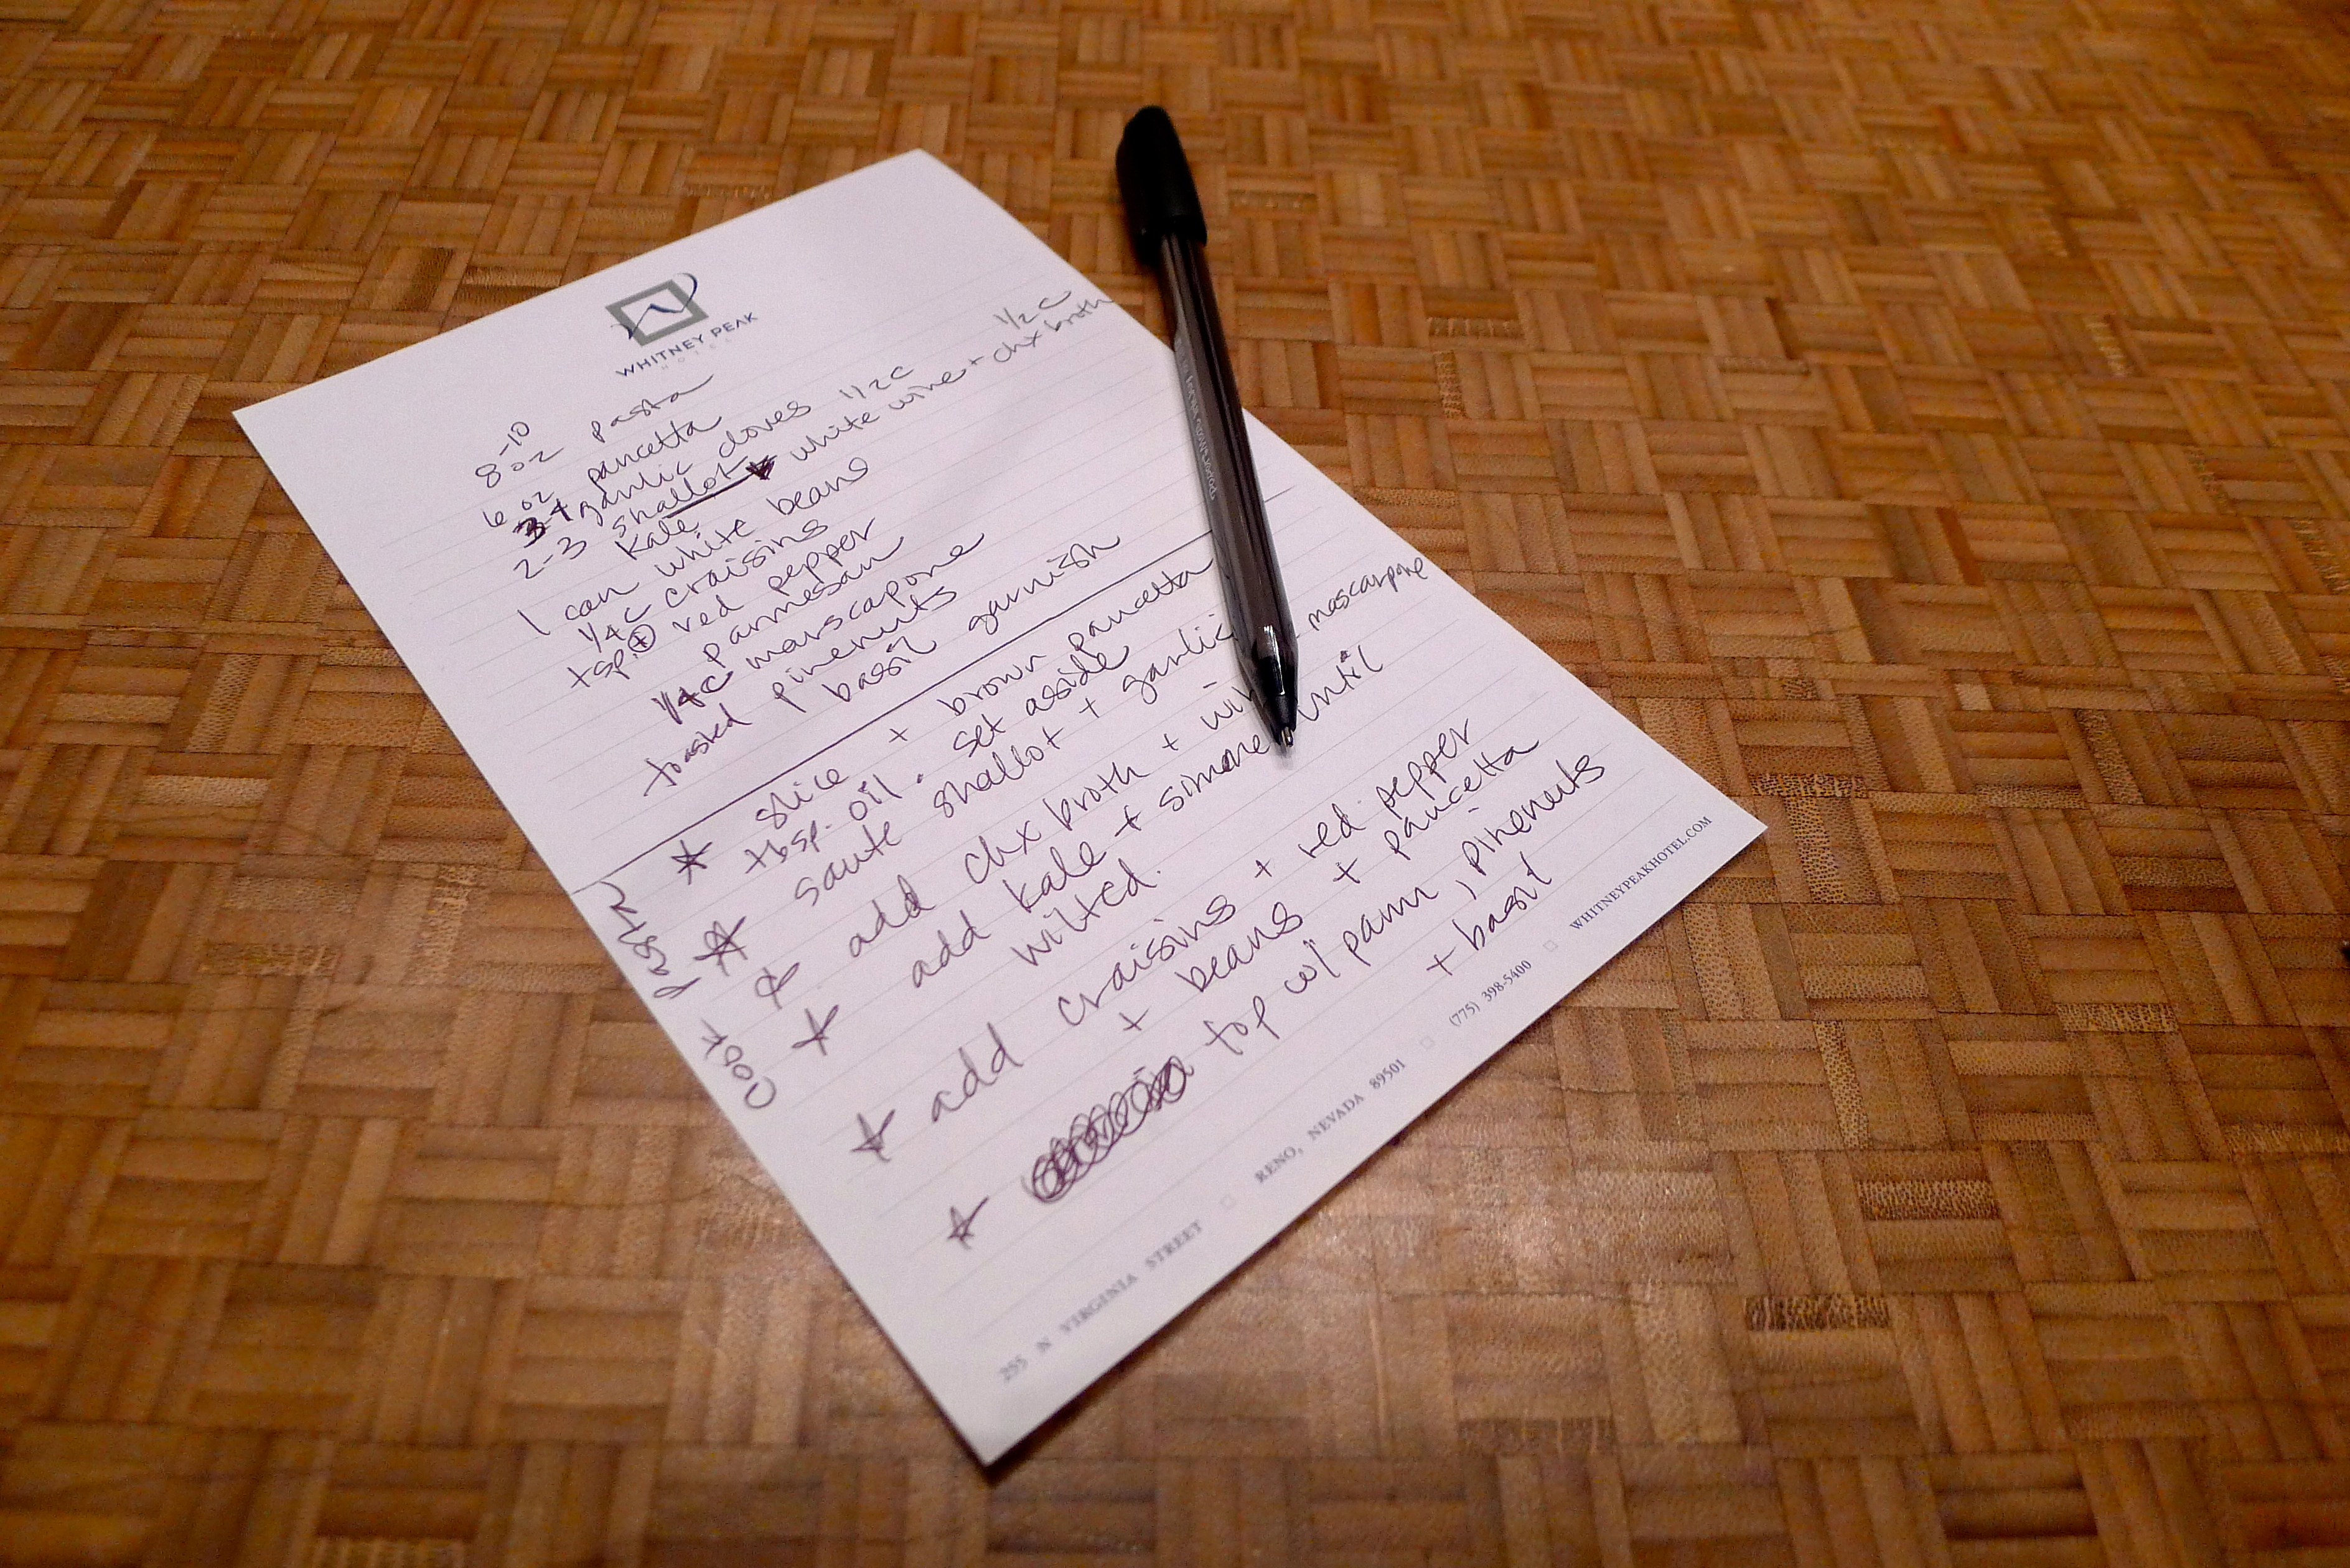 WHITNEY PEAK
HOTEL
8-10 oz pasta
6 oz pancetta
3+ garlic cloves 1/2c 1/2 c
2-3 shallot white wine + chx broth
kale
1 can white beans
1/4c craisins
tsp. + red pepper
parmesan
1/4c marscapone
toasted pinenuts
basil garnish
* slice + brown pancetta
tbsp. oil. set asside
* saute shallot + garlic
* add chx broth + mascarpone
* add kale + simmer until
wilted.
* add craisins + red pepper
+ beans + pancetta
* top w/ parm, pinenuts
+ basil
cook pasta
255 N VIRGINIA STREET RENO, NEVADA 89501 (775) 398-5400 WHITNEYPEAKHOTEL.COM